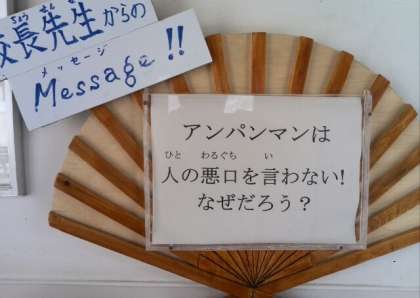 校長先生からの
こうちょうせんせい
メッセージ
Message!!
アンパンマンは
ひと わるぐち い
人の悪口を言わない!
なぜだろう？